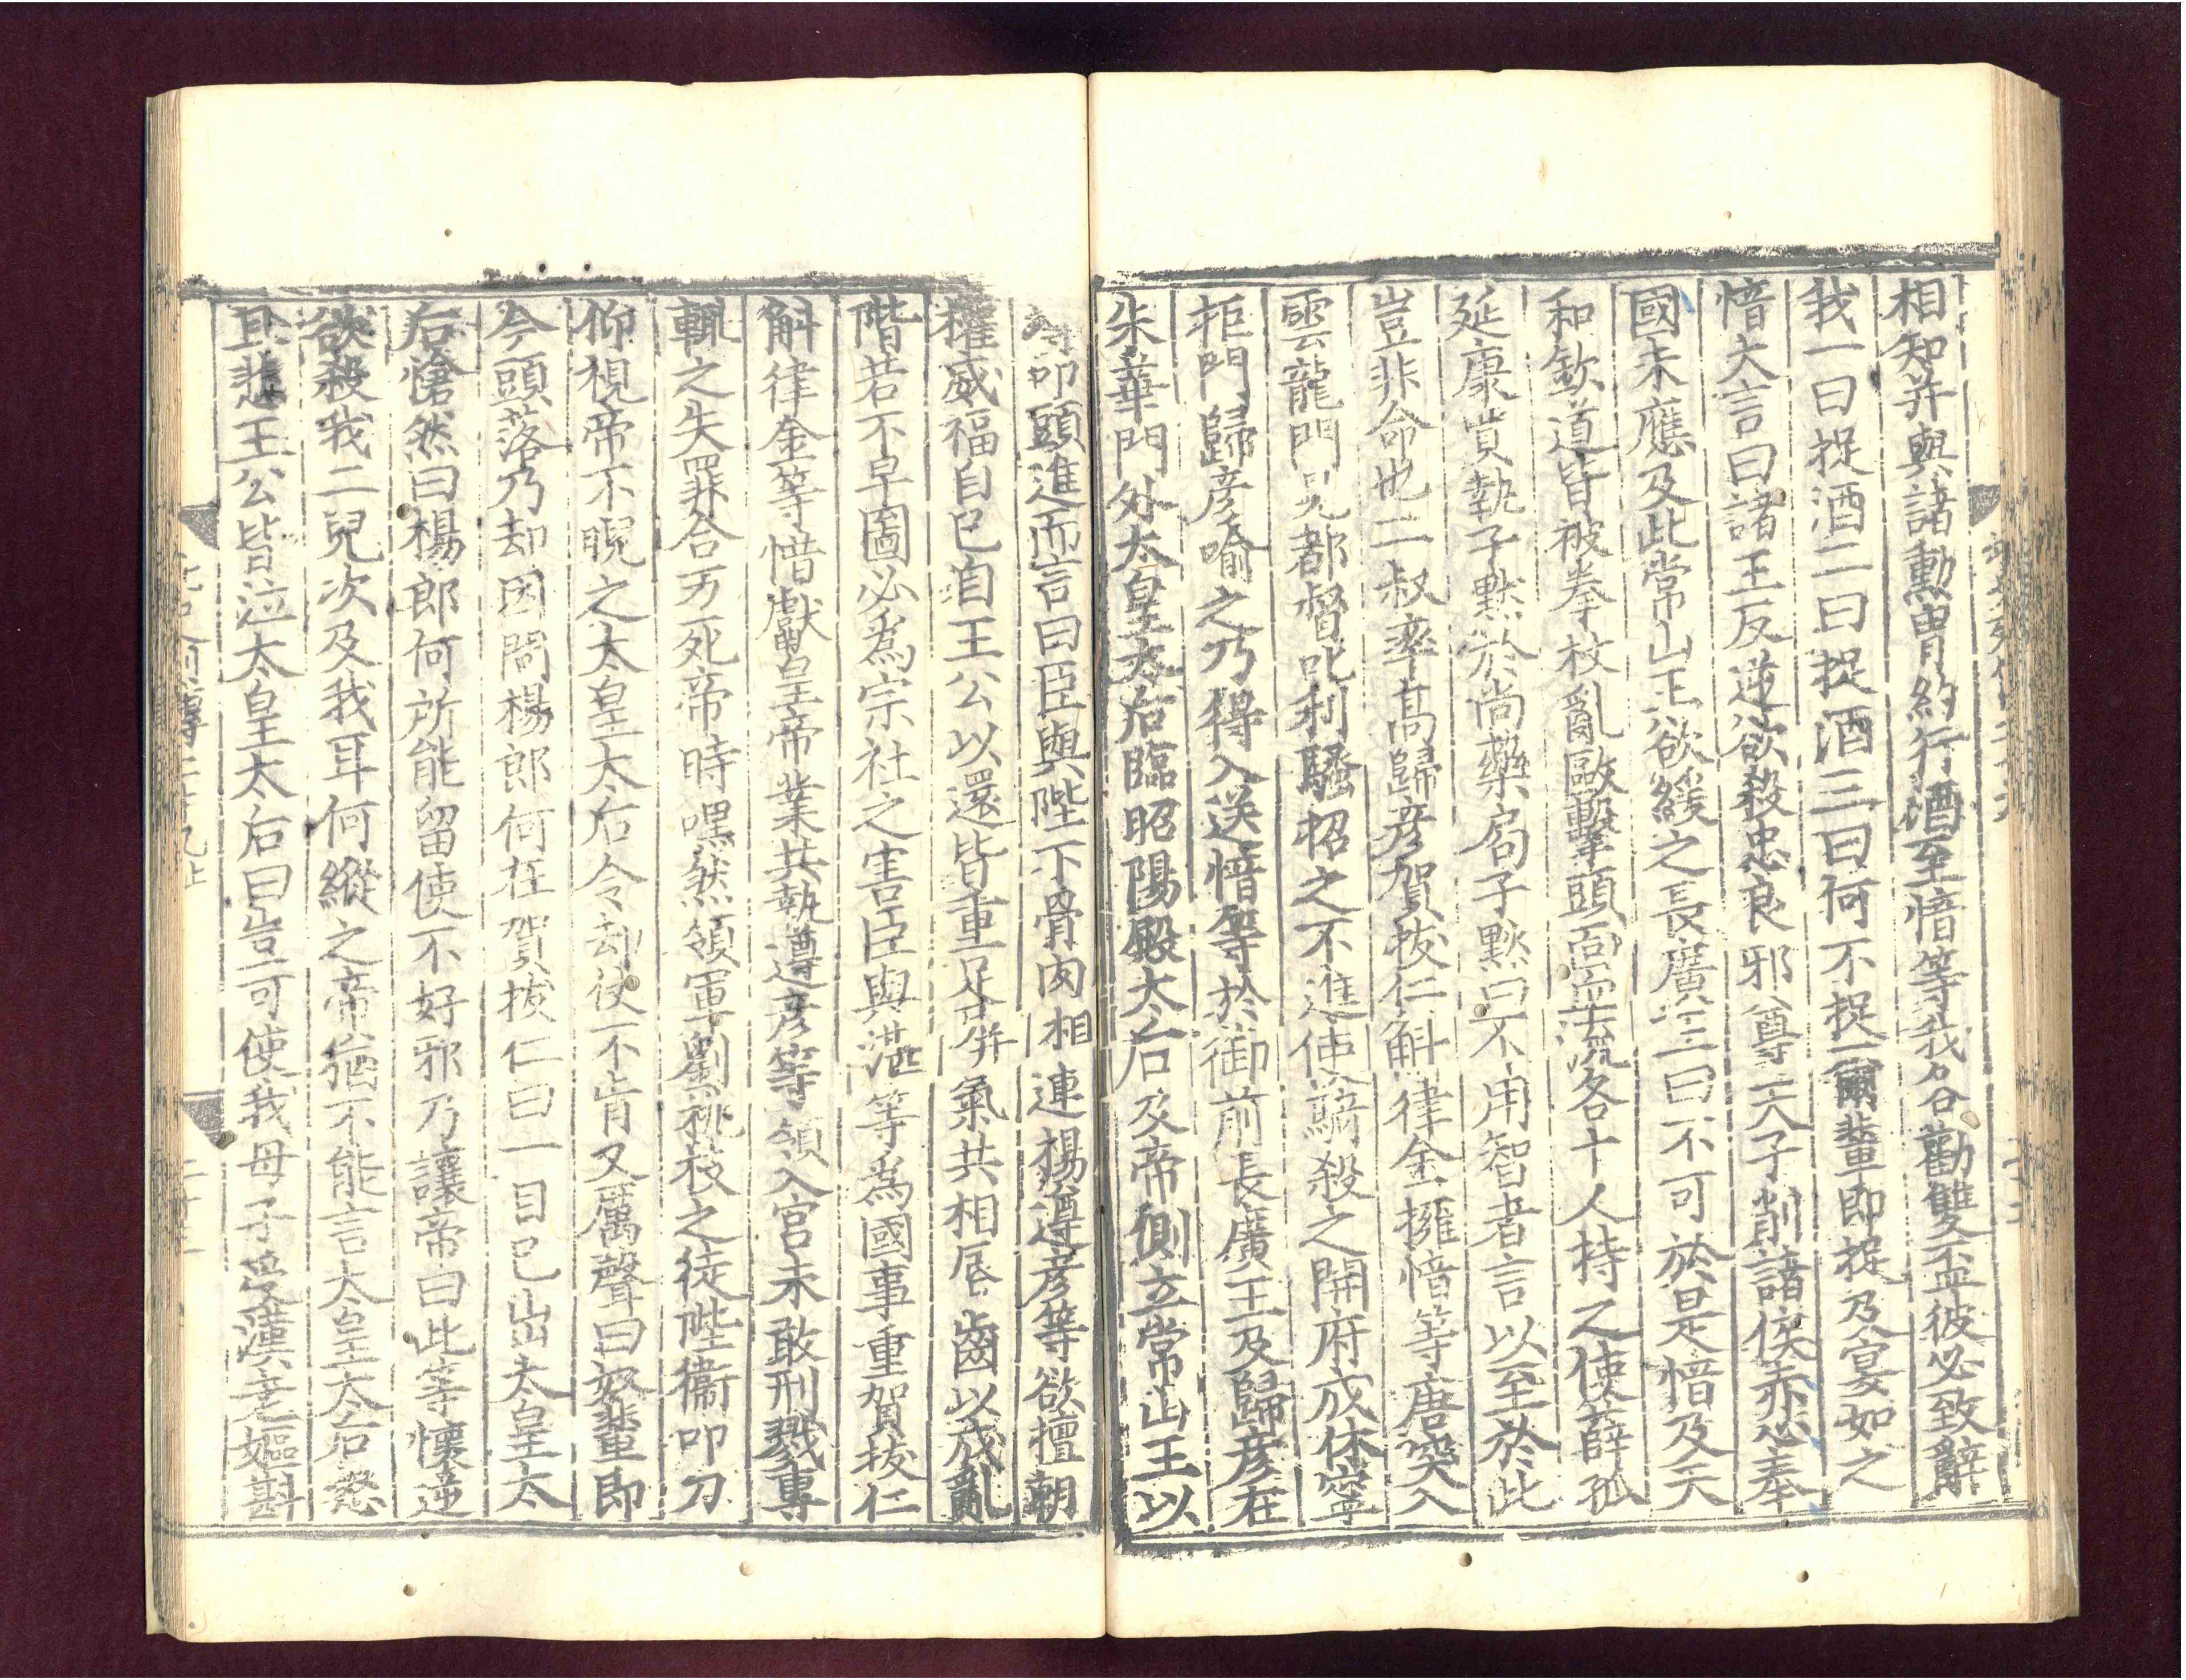 相知并與諸勳冑約行酒至愔等我各勸雙盃彼必致辭
我一曰捉酒二曰捉酒三曰何不捉爾輩即捉及宴如之
愔大言曰諸王反逆欲殺忠良邪尊天子削諸侯赤心奉
國未應及此常山王欲緩之長廣王曰不可於是愔及天
和欽道皆被拳杖亂毆擊頭面血流各十人持之使薛孤
延康買執子默於尚藥局子默曰不用智者言以至於此
豈非命也二叔率高歸彦賀拔仁斛律金擁愔等唐突入
雲龍門見都督叱利騷招之不進使騎殺之開府成休寧
拒門歸彦喻之乃得入送愔等於御前長廣王及歸彦在
朱華門外太皇太后臨昭陽殿太后及帝側立常山王以
叩頭進而言曰臣與陛下骨肉相連楊遵彦等欲擅朝
權威福自己自王公以還皆重足屏氣共相唇齒以成亂
階若不早圖必為宗社之害臣與湛等為國事重賀拔仁
斛律金等惜獻皇帝業共執遵彦等領入宮未敢刑戮專
輒之失罪合万死帝時嘿然領軍劉桃枝之徒陛衞叩刀
仰視帝不睨之太皇太后令却仗不肯又厲聲曰奴輩即
今頭落乃却因問楊郎何在賀拔仁曰一目已出太皇太
后愴然曰楊郎何所能留使不好邪乃讓帝曰此等懷逆
欲殺我二兒次及我耳何縱之帝猶不能言太皇太后怒
且悲王公皆泣太皇太后曰豈可使我母子受漢老嫗斟